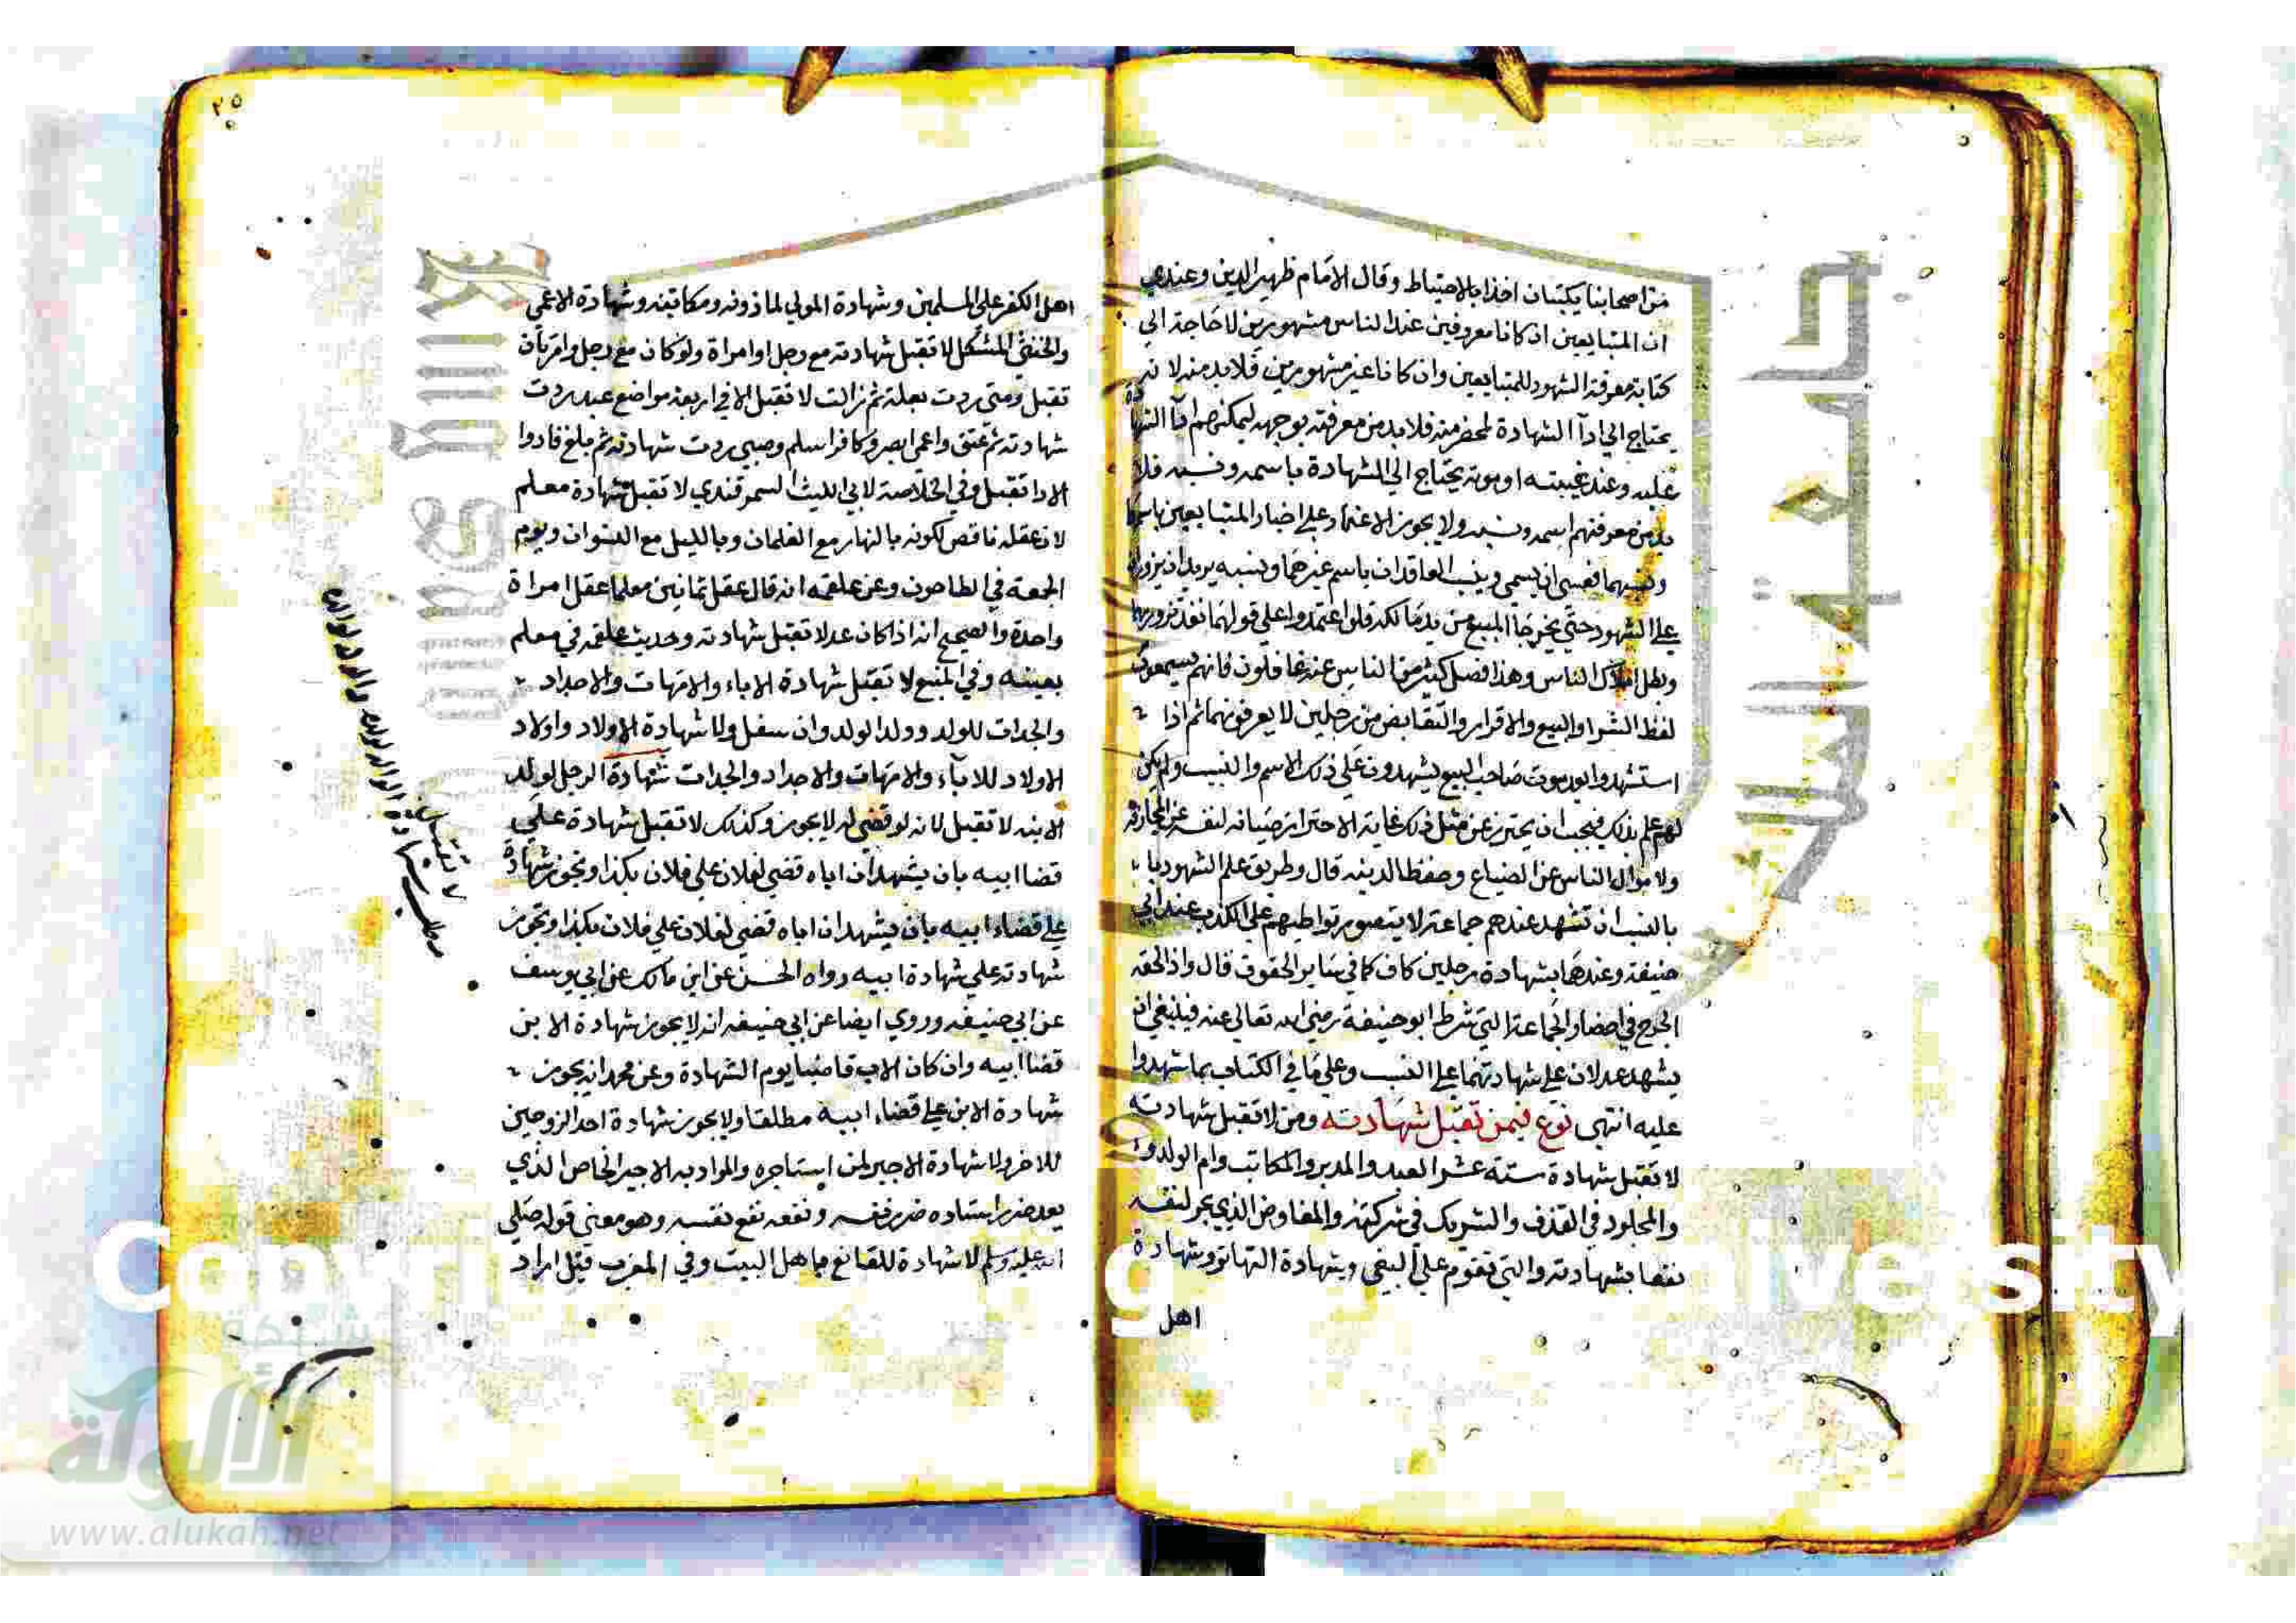 من اصحابنا يكتبان اخذا بالاحتياط وقال الامام ظهير الدين وعندي
ان المتبايعين ان كانا معروفين عند الناس مشهورين لا حاجة الي
كتابة معرفة الشهود للمتبايعين وان كانا غير مشهورين فلا بد منه لانه
يحتاج الي ادآ الشهادة لمحضر منه فلا بد من معرفته بوجهه ليمكنهم ادآ الشهادة
عليه وعند غيبته او موته يحتاج الي الشهادة باسمه ونسبه فلا
بد من معرفتهم اسمه ونسبه ولا يجوز الاعتماد علي اخبار المتبايعين باسمهما
ونسبهما فعسي ان يسمي وينسب العاقدان باسم غيرهما ونسبه يريدان يزورا
علي الشهود حتي يخرجا المبيع من يد مالكه فلو اعتمدوا علي قولهما نفذ تزويرهما
وبطل املاك الناس وهذا فصل كثير من الناس عنه غافلون فانهم يسمعون
لفظ الشرا والبيع والاقرار والتقابض من رجلين لا يعرفونهما ثم اذا
استشهدوا بعد موت صاحب البيع يشهدون علي ذلك الاسم والنسب ولم يكن
لهم علم بذلك فيجب ان يحترز عن مثل ذلك غاية الاحتراز صيانه لنفسه عن المجازفة
ولاموال الناس عن الضياع وحفظا لدينه قال وطريق علم الشهود با
بالنسب ان تشهد عندهم جماعة لا يتصور تواطيهم علي الكذب عند ابي
حنيفة وعندهما بشهادة رجلين كاف كما في ساير الحقوق قال واذا لحقه
الحرج في احضار الجماعة التي شرط ابو حنيفة رضي الله تعالي عنه فينبغي ان
يشهد عدلان علي شهادتهما علي النسب وعلي ما في الكتاب بما شهدوا
عليه انتهي نوع فيمن تقبل شهادته ومن لا تقبل شهادته
لا تقبل شهادة ستة عشر العبد والمدبر والمكاتب وام الولد
والمجلود في القذف والشريك في شركته والمفاوض الذي يجر لنفسه
نفعا بشهادته والتي تقوم علي النفي وشهادة التهاتر وشهادة
اهل
٢٥
اهل الكفر علي المسلمين وشهادة المولي لماذونه ومكاتبه وشهادة الاعمي
والخنثي المشكل لا تقبل شهادته مع رجل او امراة ولو كان مع رجل وامرتان
تقبل ومتي ردت بعلة ثم زالت لا تقبل الا في اربعة مواضع عبد ردت
شهادته ثم عتق واعمي ابصر وكافر اسلم وصبي ردت شهادته ثم بلغ فادوا
الادا تقبل وفي الخلاصة لابي الليث السمرقندي لا تقبل شهادة معلم
لان عقله ناقص لكونه بالنهار مع الغلمان وبالليل مع النسوان ويوم
الجمعة في الطاحون وعن علقمه انه قال عقل ثمانين معلما عقل امراة
واحدة والصحيح انه اذا كان عدلا تقبل شهادته وحديث علقمه في معلم
بعينه وفي المنبع لا تقبل شهادة الاباء والامهات والاجداد
والجدات للولد وولد الولد وان سفل ولا شهادة الاولاد واولاد
الاولاد للاباء والامهات والاجداد والجدات شهادة الرجل لولد
الابنه لا تقبل لانه لو قضي له لا يجوز وكذلك لا تقبل شهادة علي
قضا ابيه بان يشهد ان اباه قضي لفلان علي فلان بكذا وتجوز شهادة
علي قضاء ابيه بان يشهد ان اباه قضي لفلان علي فلان بكذا وتجوز
شهادته علي شهادة ابيه رواه الحسن عن ابن مالك عن ابي يوسف
عن ابي حنيفه وروي ايضا عن ابي حنيفه انه لا يجوز شهادة الابن
قضا ابيه وان كان الاب قاضيا يوم الشهادة وعن محمد انه يجوز
شهادة الابن علي قضاء ابيه مطلقا ولا يجوز شهادة احد الزوجين
للاخر ولا شهادة الاجير لمن استاجره والمراد به الاجير الخاص الذي
يعد ضرر استاده ضرر نفسه ونفعه نفع نفسه وهو معني قوله صلي
الله عليه وسلم لا شهادة للقانع باهل البيت وفي المغرب قيل اراد
مطلب
شهادة الوالد لولده والولد لوالده
لا تقبل
جامعة الملك
Copyri g iversity
شبكة
الألوكة
www.alukah.net